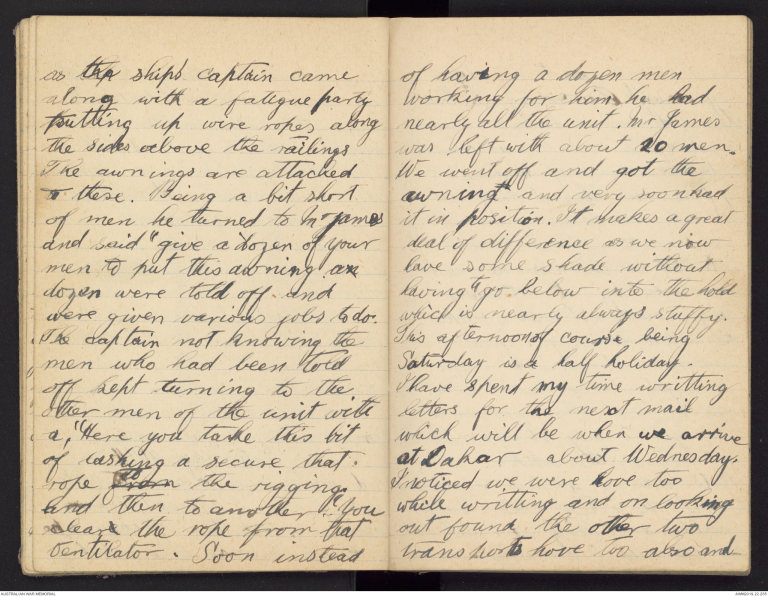 as the ships captain came
along with a fategue party
putting up wire ropes along
the sides above the railings
The awnings are attached
to these. Being a bit short
of men he turned to Mr James
and said "give a dozen of your
men to put this awning an
dozen were told off and
were given various jobs to do.
The captain not knowing the
men who had been told
off kept turning to the
other men of the unit with
a, "Here you take this bit
of lashing a secure that.
rope to the rigging
and then to another "You
clear the rope from that
ventilator. Soon instead
of having a dozen men
working for him he had
nearly all the unit. Mr James
was left with about 20 men.
We went off and got the
awning and very soon had
it in position. It makes a great
deal of difference as we now
have some shade without
having go below into the hold
which is nearly always stuffy.
This afternoon of course being
Saturday is a half holiday.
I have spent my time writting
letters for the next mail
which will be when we arrive
at Dakar about Wednesday.
I noticed we were hove too
while writting and on looking
out found the other two
transports hove too also and
AUSTRALIAN WAR MEMORIAL